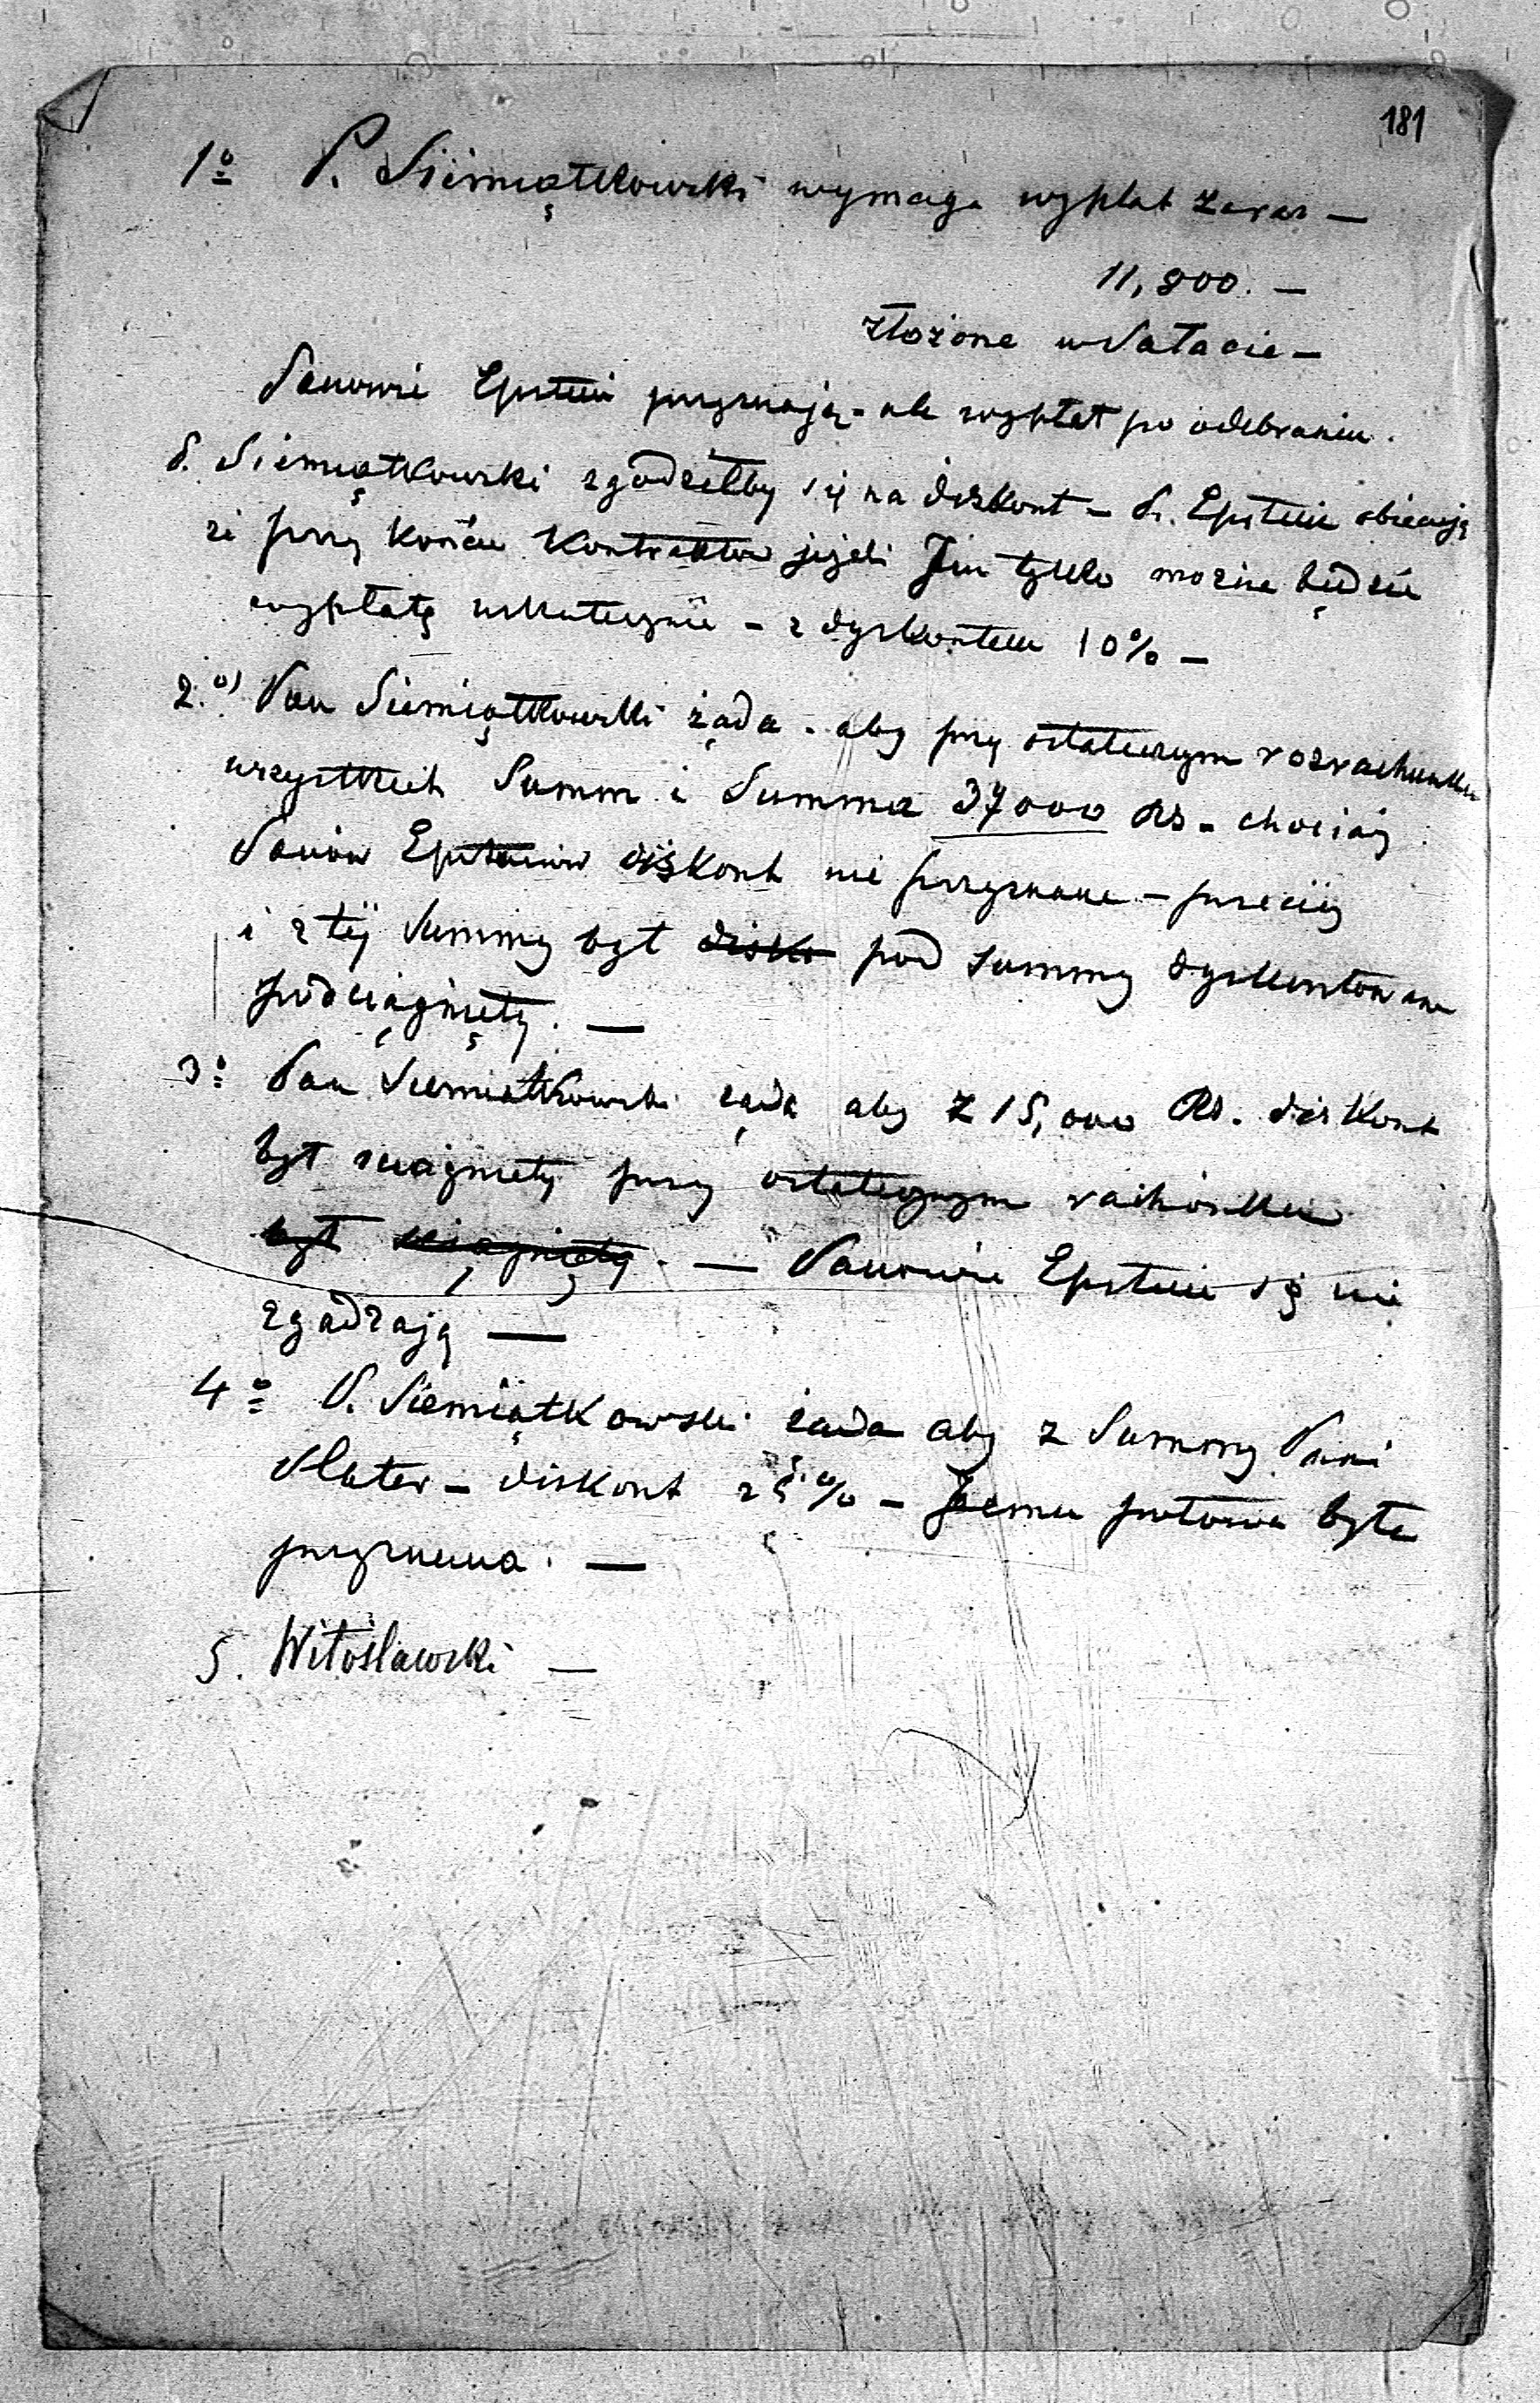 181
1o P. Siemiątkowski wymaga wypłat zaraz —
11,800. —
złożone w Pałacie —
Panowie Epstein przyznają - ale wypłat po odebraniu.
P. Siemiątkowski zgodziłby się na diskont — P. Epstein obiecują
że przy końcu Kontraktów jeżeli Jim tylko można będzie
wypłatę uskutecznie — z dyskontem 10% —
2.o) Pan Siemiątkowski żąda - aby przy ostatecznym rozrachunku
wszystkich Summ i Summa 37000 Rs - chociaż
Panów Epsteinów diskont nie przyznane — przeciéż
i z téj Summy był disko pod summy dyskontowane
podciągnięty. —
3o Pan Siemiątkowski żąda aby z 15,000 Rs. diskont
był sciągnięty przy ostatecznym rachónku
był sciągnięty. — Panowie Epstein się nie
zgadzają —
4o P. Siemiątkowski żąda aby z Summy Pani
Plater — diskont z 5% — Jemu połowa była
przyznana. —
5. Witosławski —